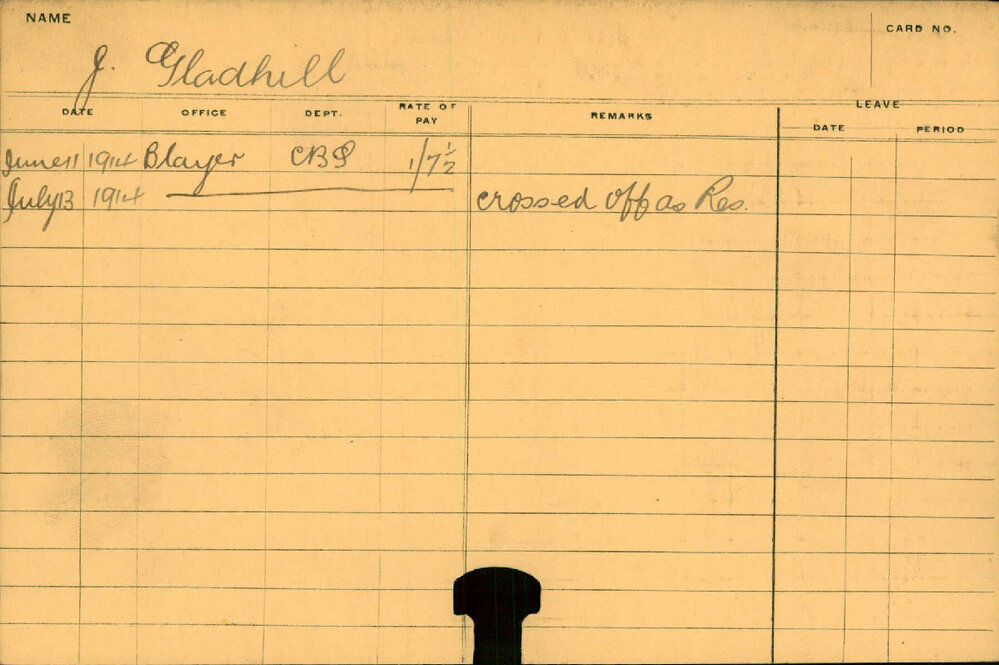 NAME
CARD NO.
J. Gladhill
DATE OFFICE DEPT. RATE OF PAY REMARKS LEAVE DATE PERIOD
June 11 1914 Blayer CBS 1/7½
July 13 1914 crossed off as Res.